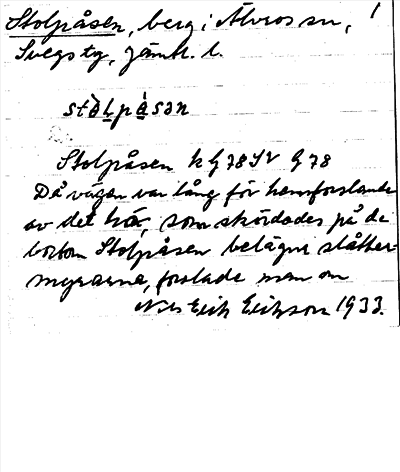 Stolpåsen, berg i Älvros sn, 1
Svegs tg, Jämtl. l.
stàlpàsən
Stolpåsen k G 78 SV G 78
Då vägen var lång för hemforslande
av det hö, som skördades på de
bortom Stolpåsen belägna slåtter-
myrarna, forslade man om
Nils Erik Erikson 1933.